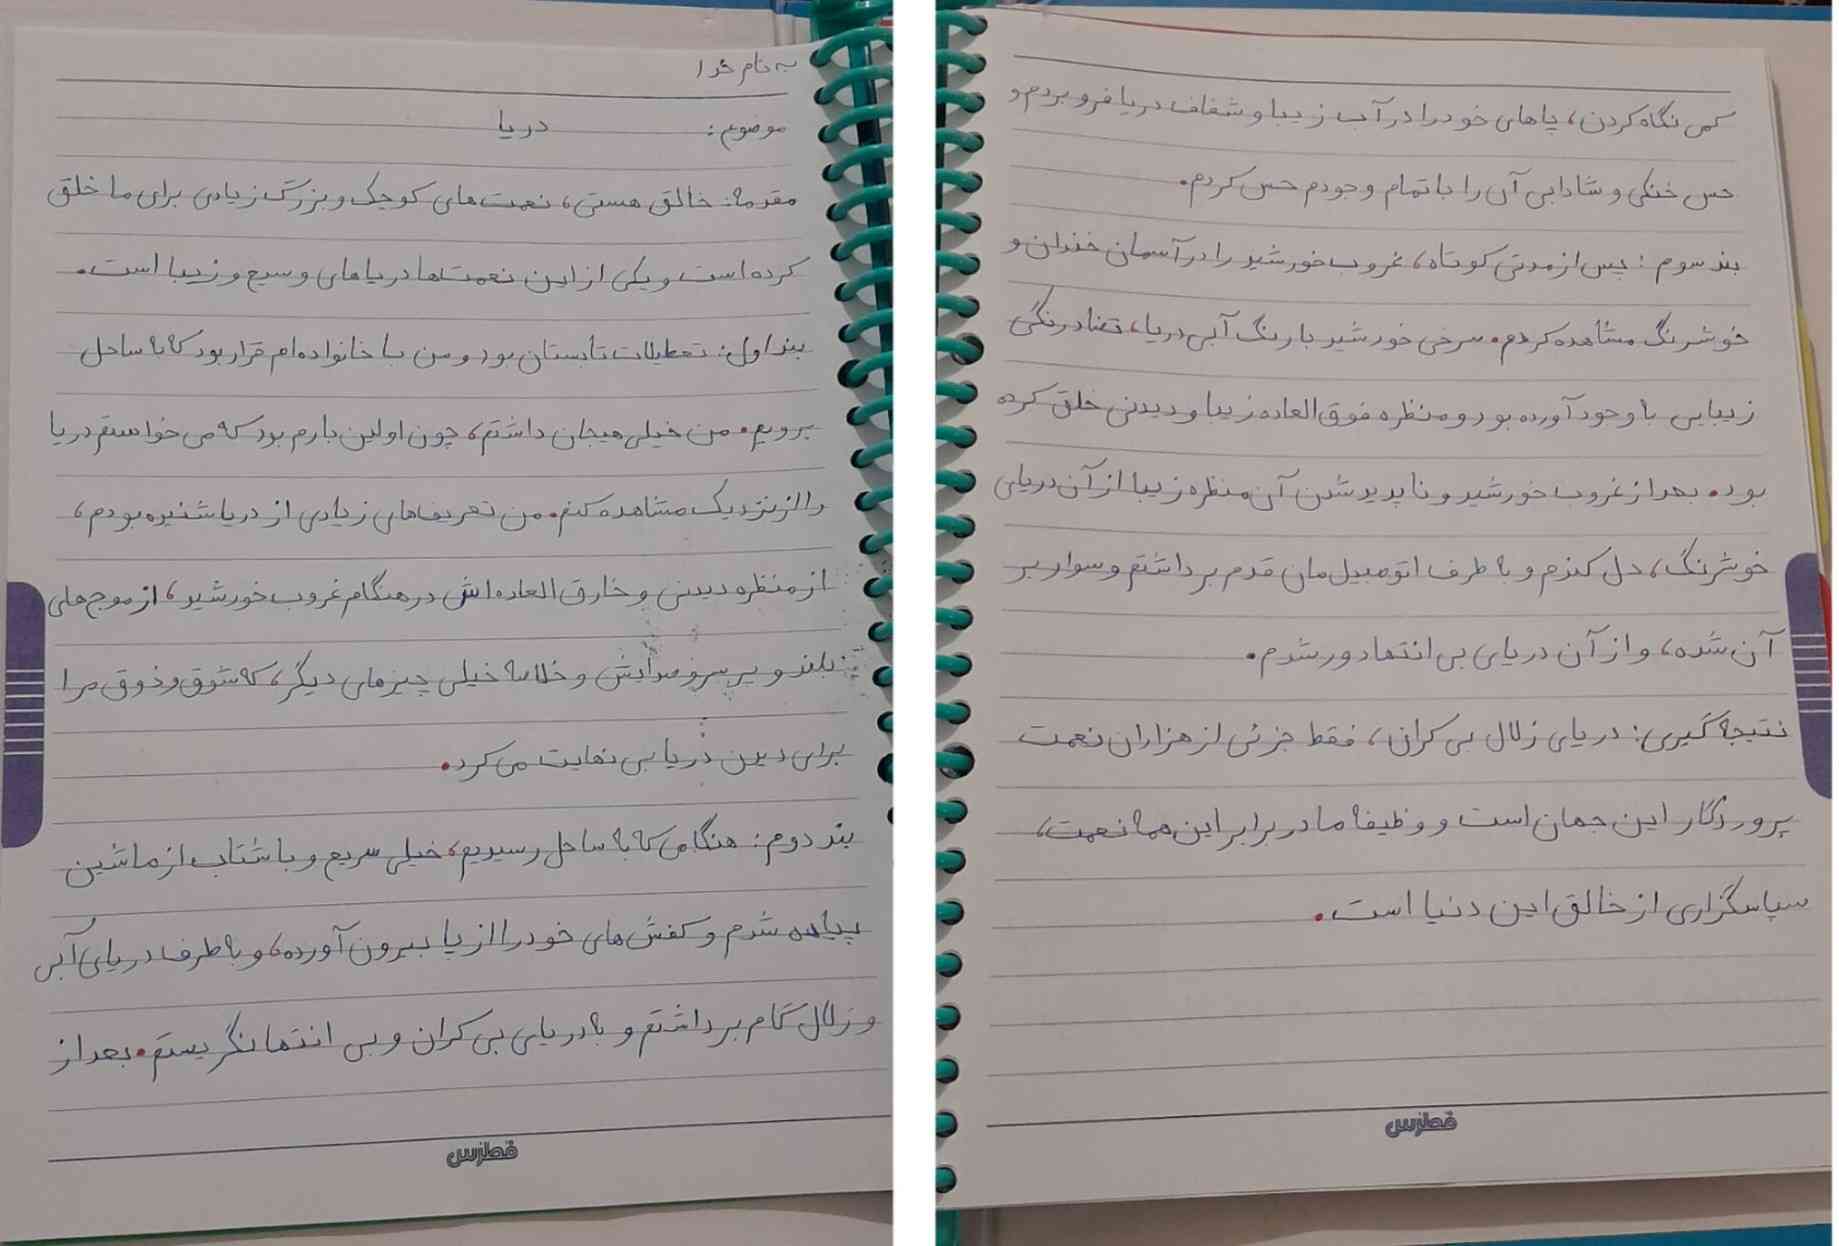 به نام خدا
موضوع: دریا
مقدمه: خالق هستی، نعمت‌های کوچک و بزرگ زیادی برای ما خلق
کرده است و یکی از این نعمت‌ها دریاهای وسیع و زیبا است.
بند اول: تعطیلات تابستان بود و من با خانواده‌ام قرار بود که به ساحل
برویم. من خیلی هیجان داشتم، چون اولین بارم بود که می‌خواستم دریا
را از نزدیک مشاهده کنم. من تعریف‌های زیادی از دریا شنیده بودم،
از منظره دیدنی و خارق العاده‌اش در هنگام غروب خورشید، از موج‌های
بلند و پر سر و صدایش و خلاصه خیلی چیزهای دیگر، که شوق و ذوق مرا
برای دیدن دریا بی نهایت می‌کرد.
بند دوم: هنگامی که به ساحل رسیدیم، خیلی سریع و با شتاب از ماشین
پیاده شدم و کفش‌های خود را از پا بیرون آورده، و به طرف دریای آبی
و زلال گام برداشتم و به دریای بی کران و بی انتها نگریستم. بعد از
قطرس
کمی نگاه کردن، پاهای خود را در آب زیبا و شفاف دریا فرو بردم و
حس خنکی و شادابی آن را با تمام وجودم حس کردم.
بند سوم: پس از مدتی کوتاه، غروب خورشید را در آسمان خندان و
خوشرنگ مشاهده کردم. سرخی خورشید با رنگ آبی دریا، تضاد رنگی
زیبایی با وجود آورده بود و منظره فوق العاده زیبا و دیدنی خلق کرده
بود. بعد از غروب خورشید و ناپدید شدن آن منظره زیبا از آن دریای
خوشرنگ، دل کندم و به طرف اتومبیل‌مان قدم برداشتم و سوار بر
آن شده، و از آن دریای بی انتها دور شدم.
نتیجه گیری: دریای زلال بی کران، فقط جزئی از هزاران نعمت
پروردگار این جهان است و وظیفه ما در برابر این همه نعمت،
سپاسگزاری از خالق این دنیا است.
قطرس